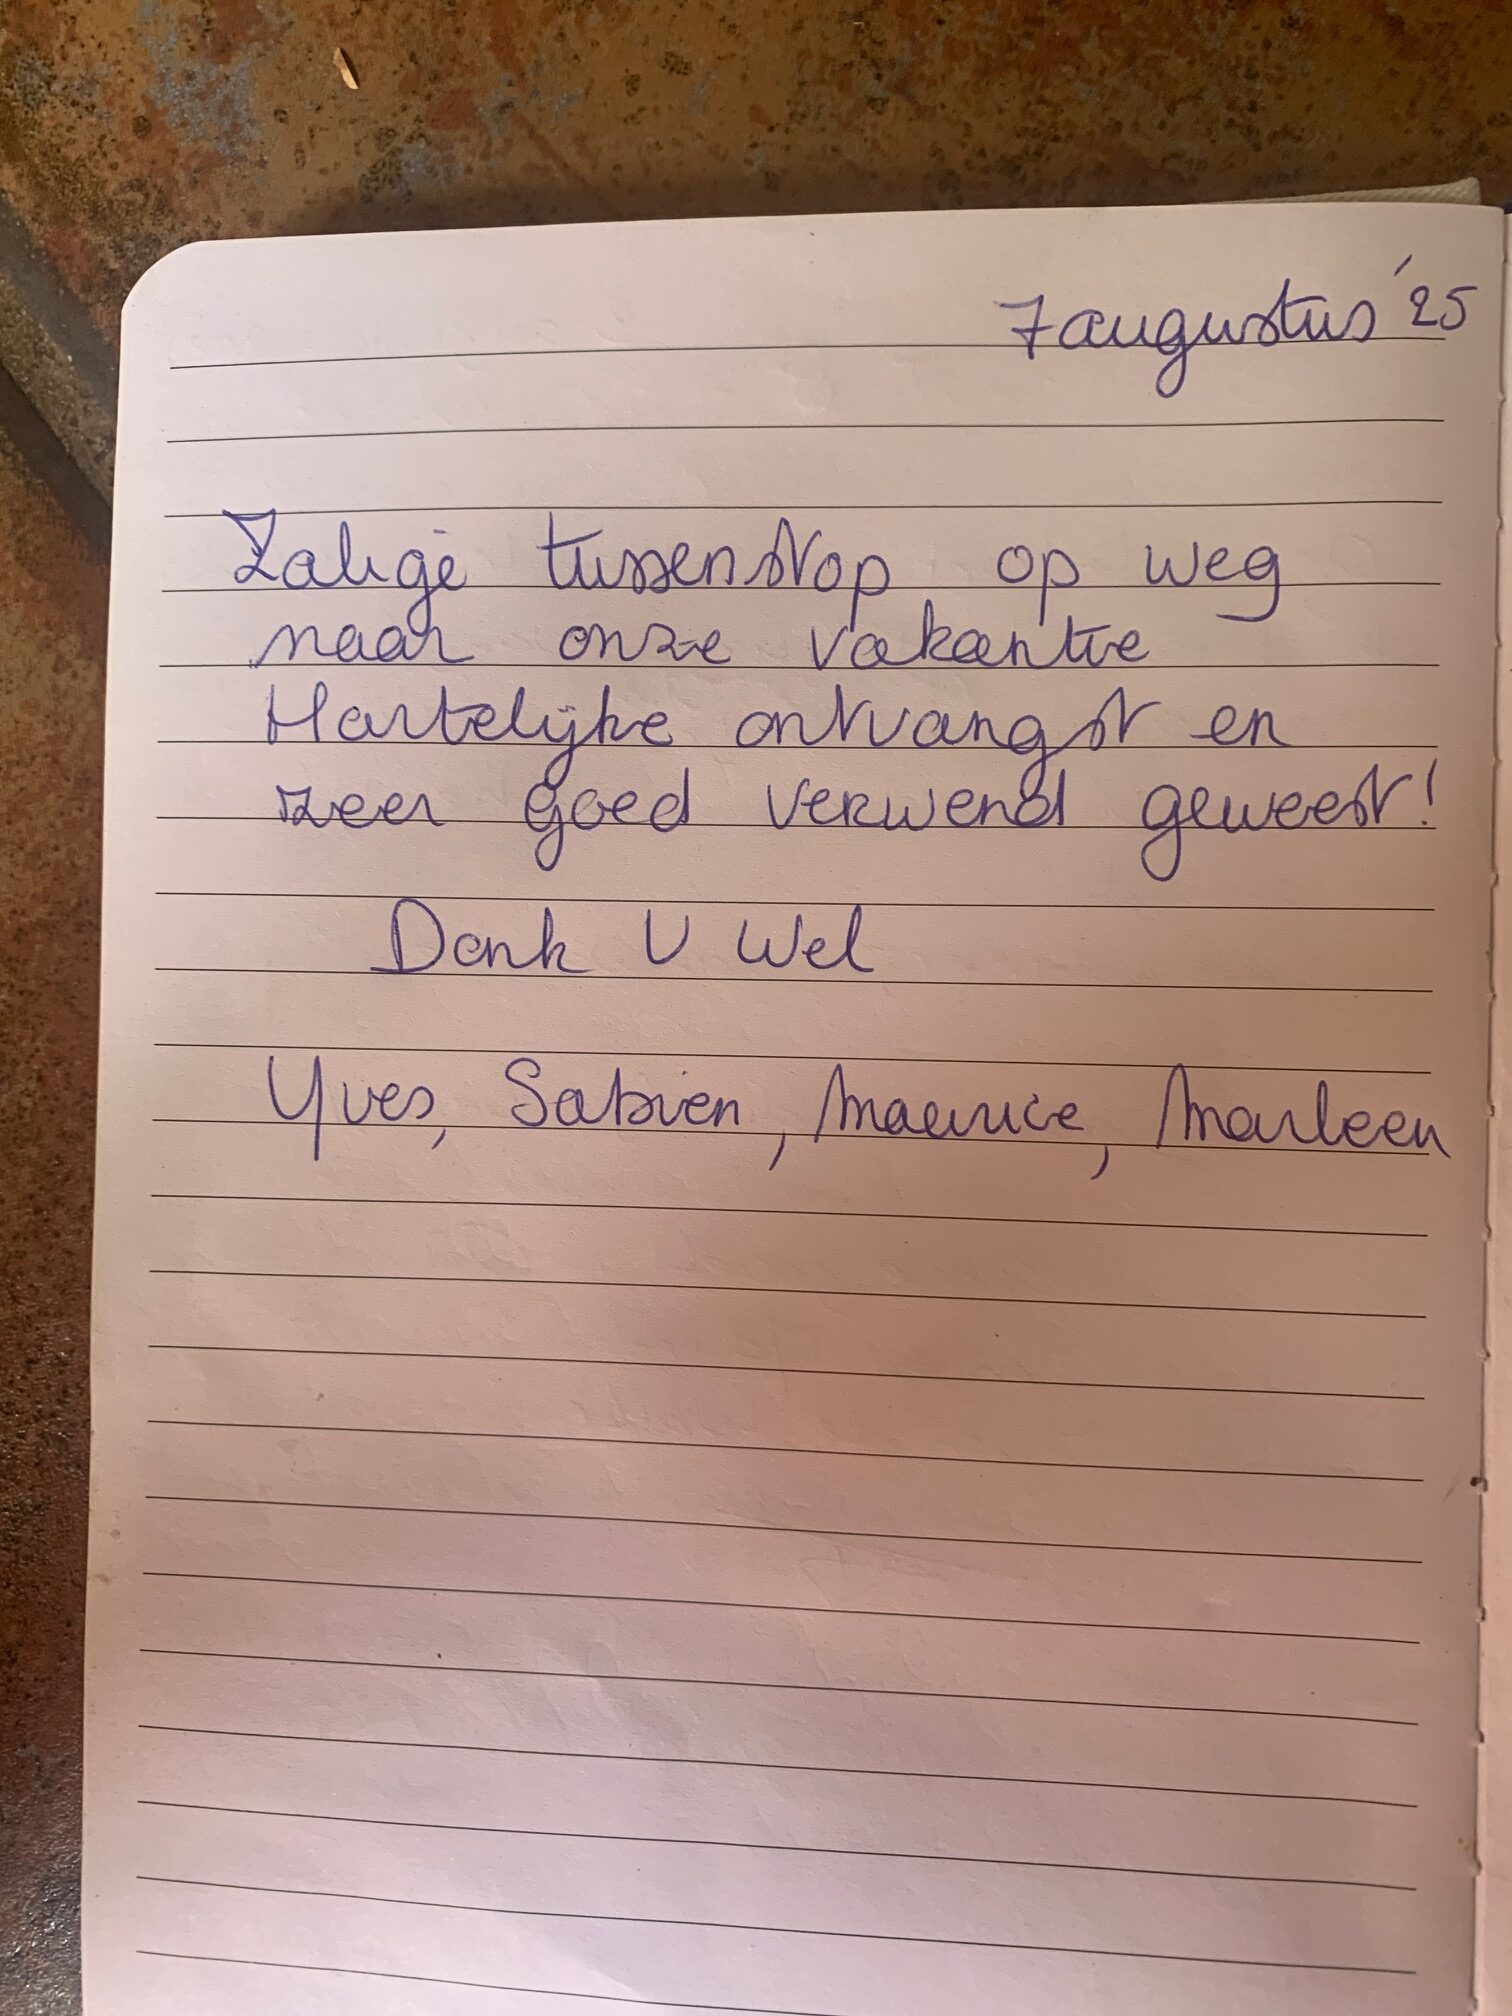 7 augustus '25
Zalige tussenstop op weg
naar onze vakantie
Hartelijke ontvangst en
zeer goed verwend geweest!
Dank U Wel
Yves, Sabien, Maurice, Marleen